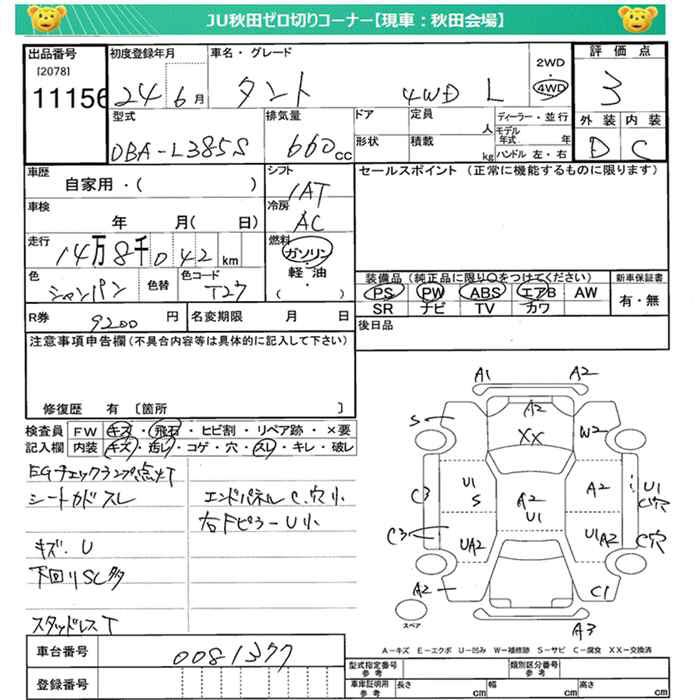 JU秋田ゼロ切りコーナー【現車：秋田会場】
出品番号
[2078]
11156
初度登録年月
24 6 月
車名・グレード
タント 4WD L
2WD
4WD
評価点
3
外装 内装
D C
型式
DBA-L385S
排気量
660 cc
ドア
形状
定員
人
積載
kg
ディーラー・並行
モデル
年式 年
ハンドル 左・右
車歴
自家用・( )
シフト
IAT
車検
年 月( 日)
冷房
AC
走行
14万8千042 km
燃料
ガソリン
・
軽油
・
( )
色
シャンパン
色替
色コード
T27
R券 9200 円
名変期限 月 日
セールスポイント（正常に機能するものに限ります）
装備品（純正品に限り○をつけてください）
PS PW ABS エアB AW
SR ナビ TV カワ
新車保証書
有・無
後日品
注意事項申告欄（不具合内容等は具体的に記入して下さい）
修復歴 有 〔箇所 〕
検査員
記入欄
FW キズ・飛石・ヒビ割・リペア跡・×要
内装 キズ・汚レ・コゲ・穴・スレ・キレ・破レ
EGチェックランプ点灯
シートカドスレ
キズ.U
下回りSC多
スタッドレスT
エンドパネルC.穴小
右Fピラ-U小
A1 A2
A2
S
XX
W2
C3
U1
S
A2
U1
A2
U1
C穴
C3
UA2
U1A2
C穴
A2
C1
A3
スペア
A－キズ E－エクボ U－凹み W－補修跡 S－サビ C－腐食 XX－交換済
車台番号 0081377
登録番号
型式指定番号
参考
類別区分番号
参考
車庫証明用
参考
長さ cm
幅 cm
高さ cm